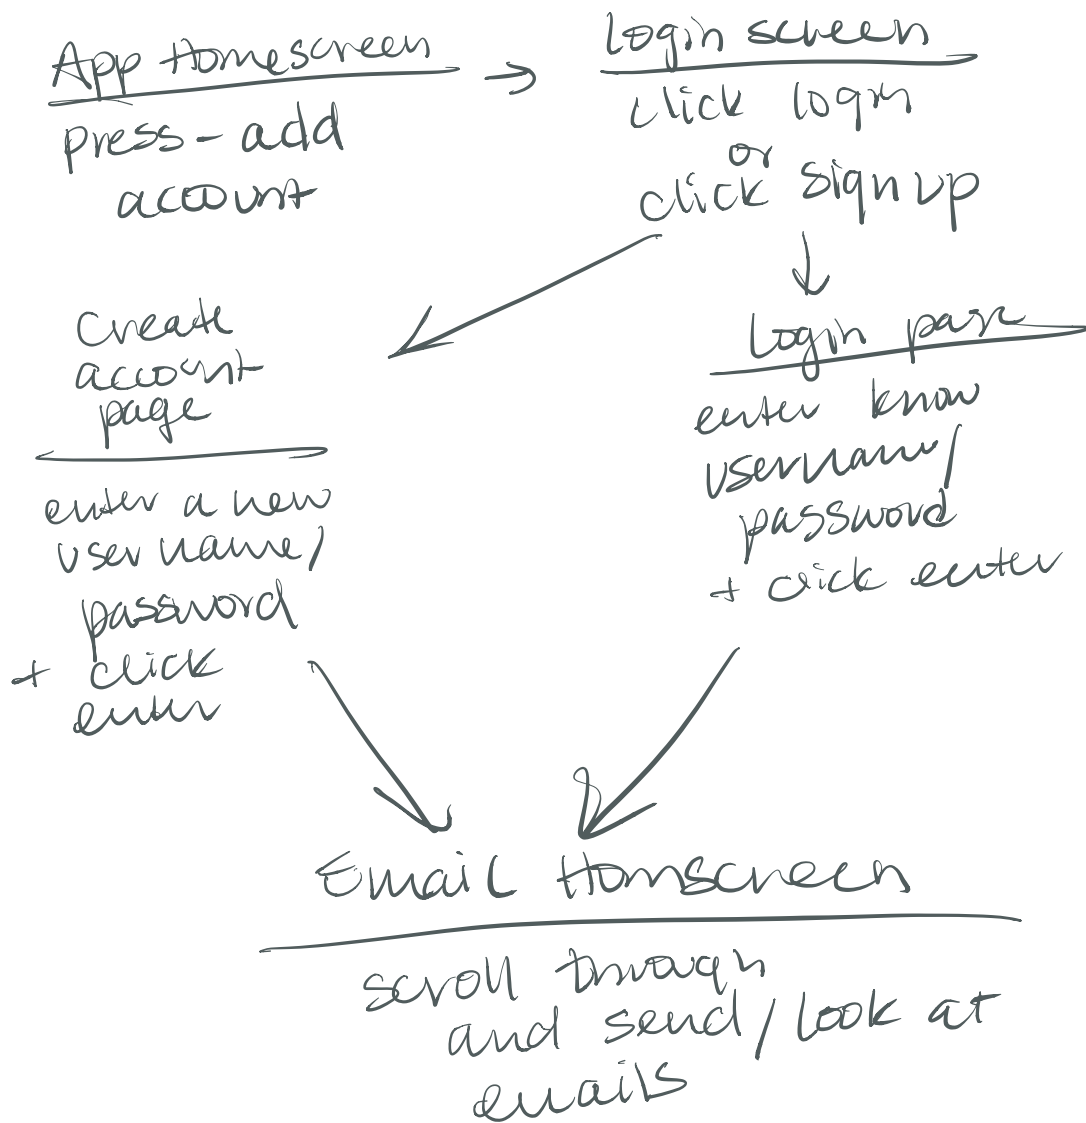 App Homescreen
press - add
account
Login screen
click login
or
click sign up
Create
account
page
enter a new
username/
password
+ click
enter
Login page
enter know
username/
password
+ click enter
Email Homscreen
scroll through
and send/look at
emails